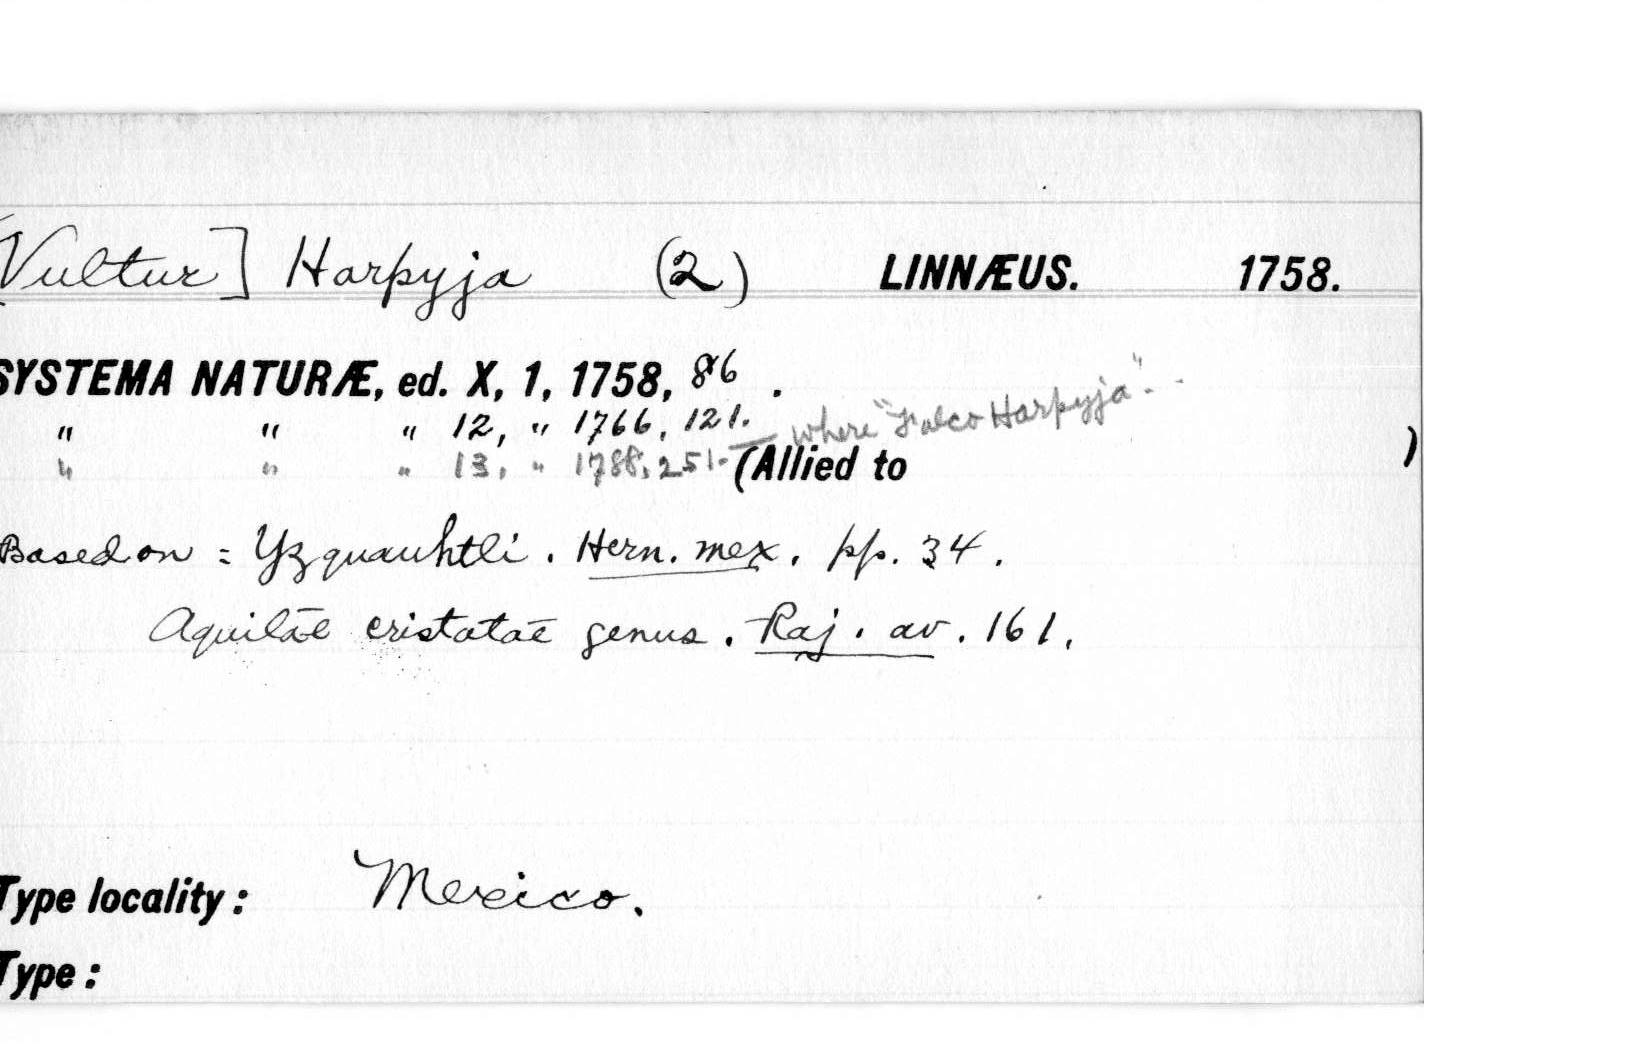 [Vultur] Harpyja (2) LINNÆUS. 1758.
SYSTEMA NATURÆ, ed. X, 1, 1758, 86 .
" " " 12, " 1766, 121. — where "Falco Harpyja".
" " " 13, " 1788, 251. (Allied to )
Based on = Yzquauhtli. Hern. mex. pp. 34.
Aquilae cristatae genus. Raj. av. 161.
Type locality: Mexico.
Type: